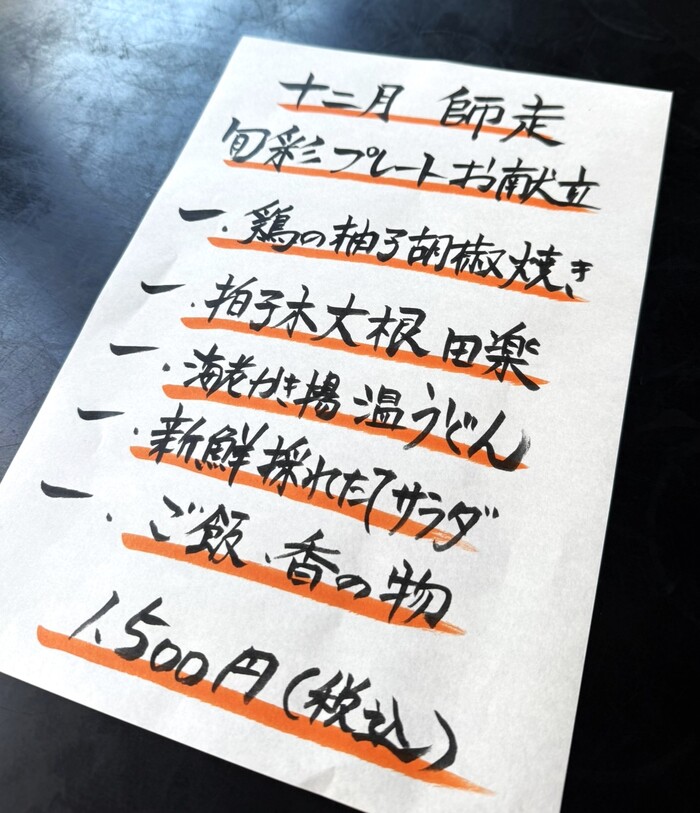 十二月 師走
旬彩プレートお献立
一.鶏の柚子胡椒焼き
一.拍子木大根田楽
一.海老かき揚温うどん
一.新鮮採れたてサラダ
一.ご飯、香の物
1,500円(税込)